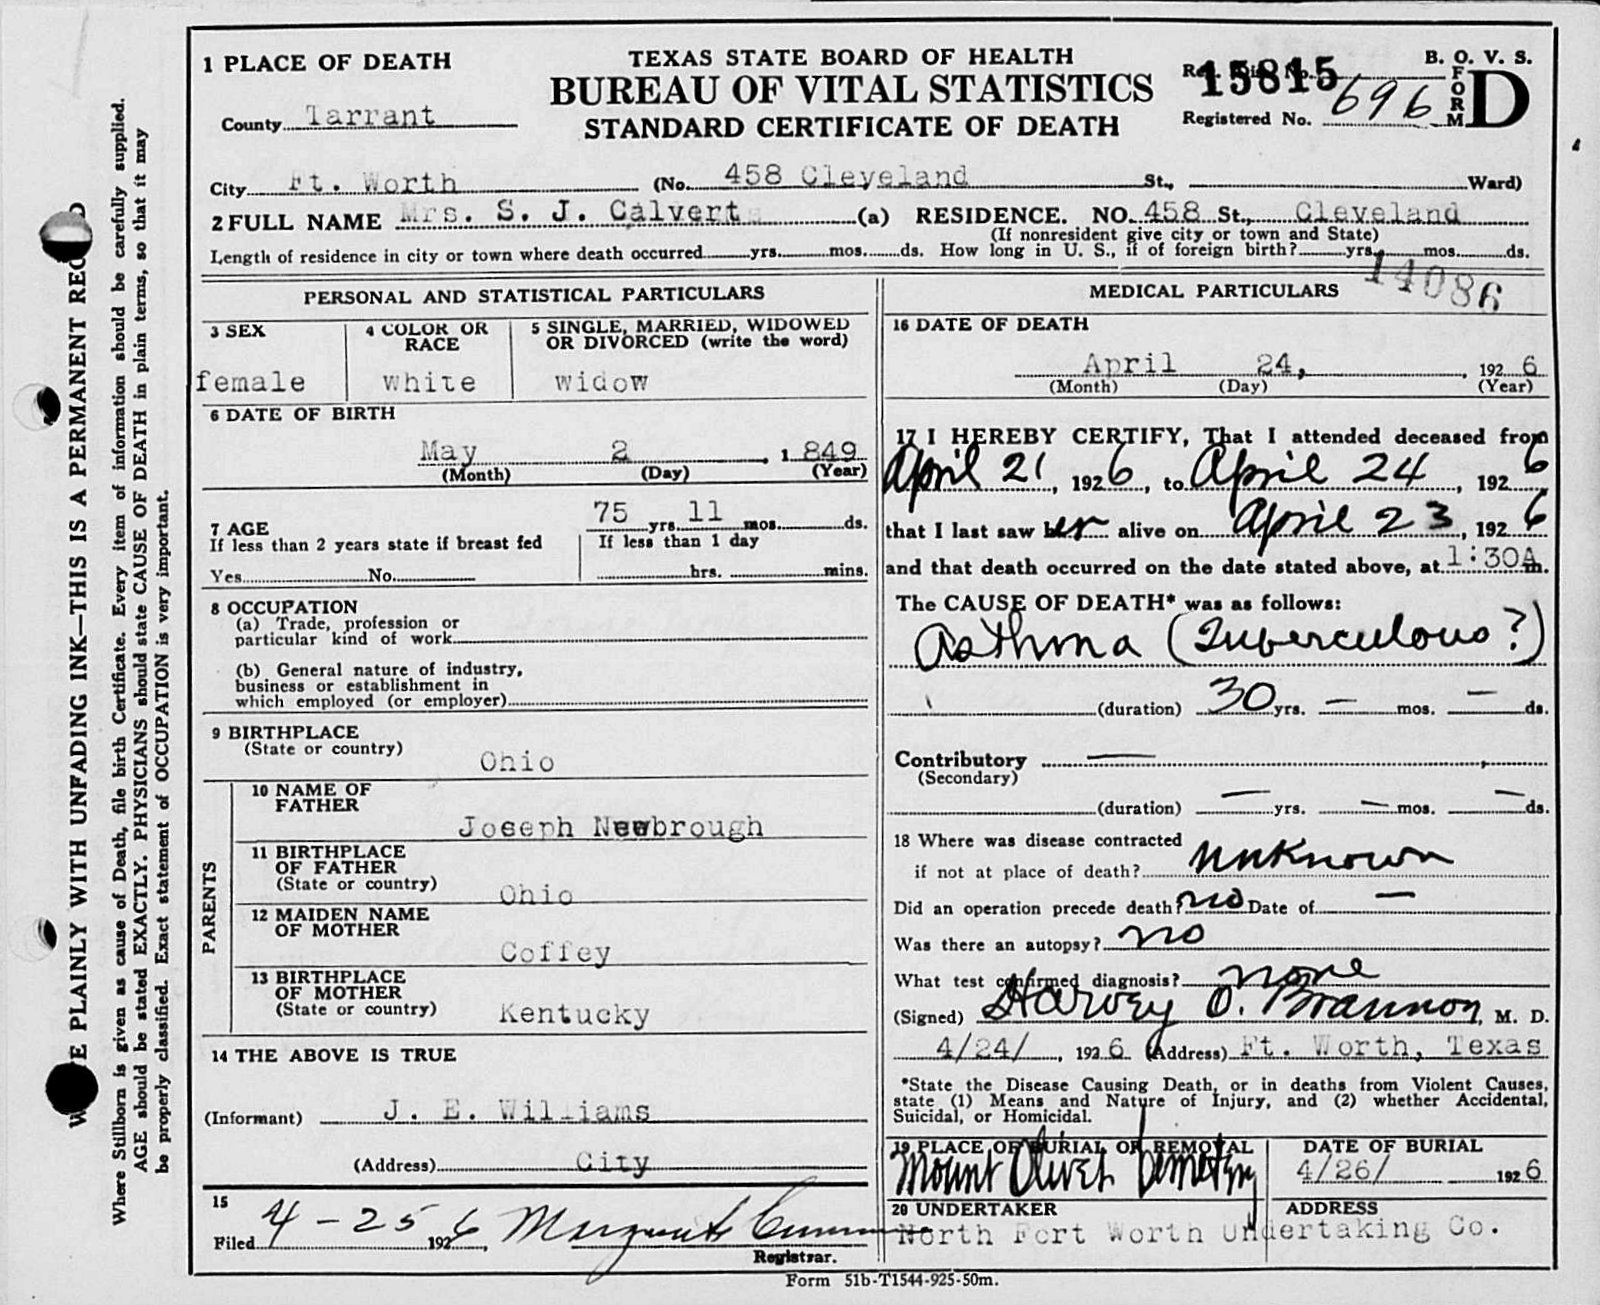 1 PLACE OF DEATH
TEXAS STATE BOARD OF HEALTH
BUREAU OF VITAL STATISTICS
STANDARD CERTIFICATE OF DEATH
B. O. V. S.
FORM D
15815
Registered No. 696
County Tarrant
City Ft. Worth (No. 458 Cleveland St., Ward)
2 FULL NAME Mrs. S. J. Calvert (a) RESIDENCE. NO. 458 St., Cleveland
(If nonresident give city or town and State)
Length of residence in city or town where death occurred yrs. mos. ds. How long in U. S., if of foreign birth? yrs. mos. ds.
14086
PERSONAL AND STATISTICAL PARTICULARS
3 SEX
female
4 COLOR OR RACE
white
5 SINGLE, MARRIED, WIDOWED
OR DIVORCED (write the word)
widow
6 DATE OF BIRTH
May 2, 1849
(Month) (Day) (Year)
7 AGE 75 yrs. 11 mos. ds.
If less than 2 years state if breast fed
Yes No
If less than 1 day
hrs. mins.
8 OCCUPATION
(a) Trade, profession or
particular kind of work
(b) General nature of industry,
business or establishment in
which employed (or employer)
9 BIRTHPLACE
(State or country) Ohio
PARENTS
10 NAME OF
FATHER
Joseph Newbrough
11 BIRTHPLACE
OF FATHER
(State or country) Ohio
12 MAIDEN NAME
OF MOTHER
Coffey
13 BIRTHPLACE
OF MOTHER
(State or country) Kentucky
14 THE ABOVE IS TRUE
(Informant) J. E. Williams
(Address) City
15
Filed 4-25 1926, Registrar.
MEDICAL PARTICULARS
16 DATE OF DEATH
April 24, 1926
(Month) (Day) (Year)
17 I HEREBY CERTIFY, That I attended deceased from
April 21, 1926, to April 24, 1926
that I last saw her alive on April 23, 1926
and that death occurred on the date stated above, at 1:30A m.
The CAUSE OF DEATH* was as follows:
Asthma (Tuberculous?)
(duration) 30 yrs. — mos. — ds.
Contributory —
(Secondary)
(duration) — yrs. — mos. — ds.
18 Where was disease contracted
if not at place of death? unknown
Did an operation precede death? no Date of —
Was there an autopsy? no
What test confirmed diagnosis? none
(Signed) Harvey O. Brannon, M. D.
4/24/, 1926 (Address) Ft. Worth, Texas
*State the Disease Causing Death, or in deaths from Violent Causes,
state (1) Means and Nature of Injury, and (2) whether Accidental,
Suicidal, or Homicidal.
19 PLACE OF BURIAL OR REMOVAL
Mount Olivet Cemetery
DATE OF BURIAL
4/26/ 1926
20 UNDERTAKER
ADDRESS
North Fort Worth Undertaking Co.
Form 51b-T1544-925-50m.
PLAINLY WITH UNFADING INK—THIS IS A PERMANENT
Where Stillborn is given as cause of Death, file birth Certificate. Every item of information should be carefully supplied.
AGE should be stated EXACTLY. PHYSICIANS should state CAUSE OF DEATH in plain terms, so that it may
be properly classified. Exact statement of OCCUPATION is very important.